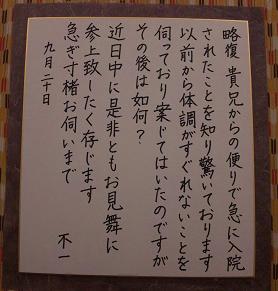 略復 貴兄からの便りで急に入院
されたことを知り驚いております
以前から体調がすぐれないことを
伺っており案じてはいたのですが
その後は如何？
近日中に是非ともお見舞に
参上致したく存じます
急ぎ寸楮お伺いまで
不一
九月二十日